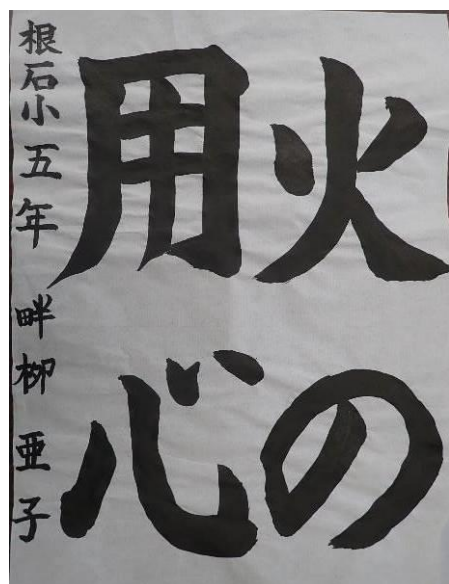 火の
用心
根石小五年 畔柳 亜子